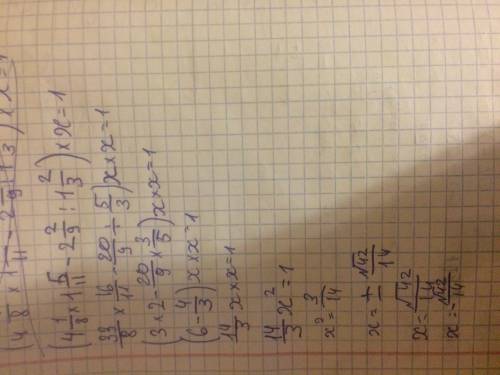 (4 1/8 × 1 5/11 - 2 2/9 : 1 2/3) × x = 1
(33/8 × 16/11 - 20/9 ÷ 5/3) x × x = 1
(3 × 2 - 20/9 × 3/5) x × x = 1
(6 - 4/3) x × x = 1
14/3 x × x = 1
14/3 x² = 1
x² = 3/14
x = ± √42/14
x = √42/14
x = - √42/14